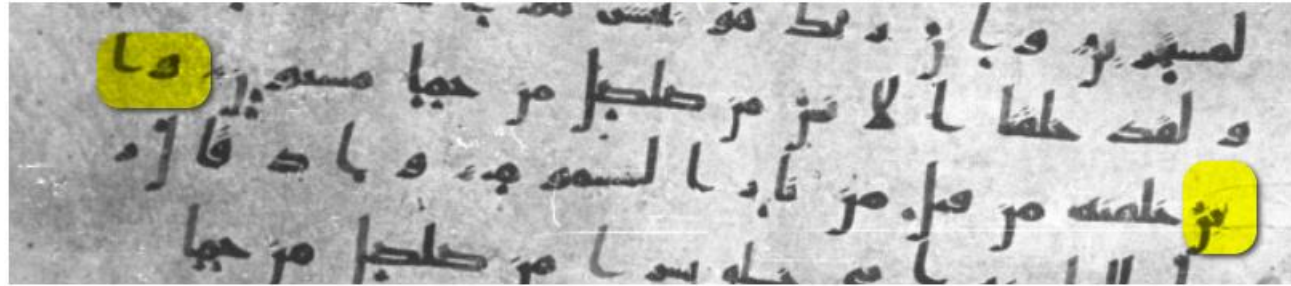 لمستخرين و ا ن ر بك هو يحشر
و لقد خلقنا ا لا نسن من صلصل من حما مسنون و ا
لجن خلقنه من قبل من نا ر ا لسموم و ا ذ قا ل ر
خلق بشر ا من صلصل من حما